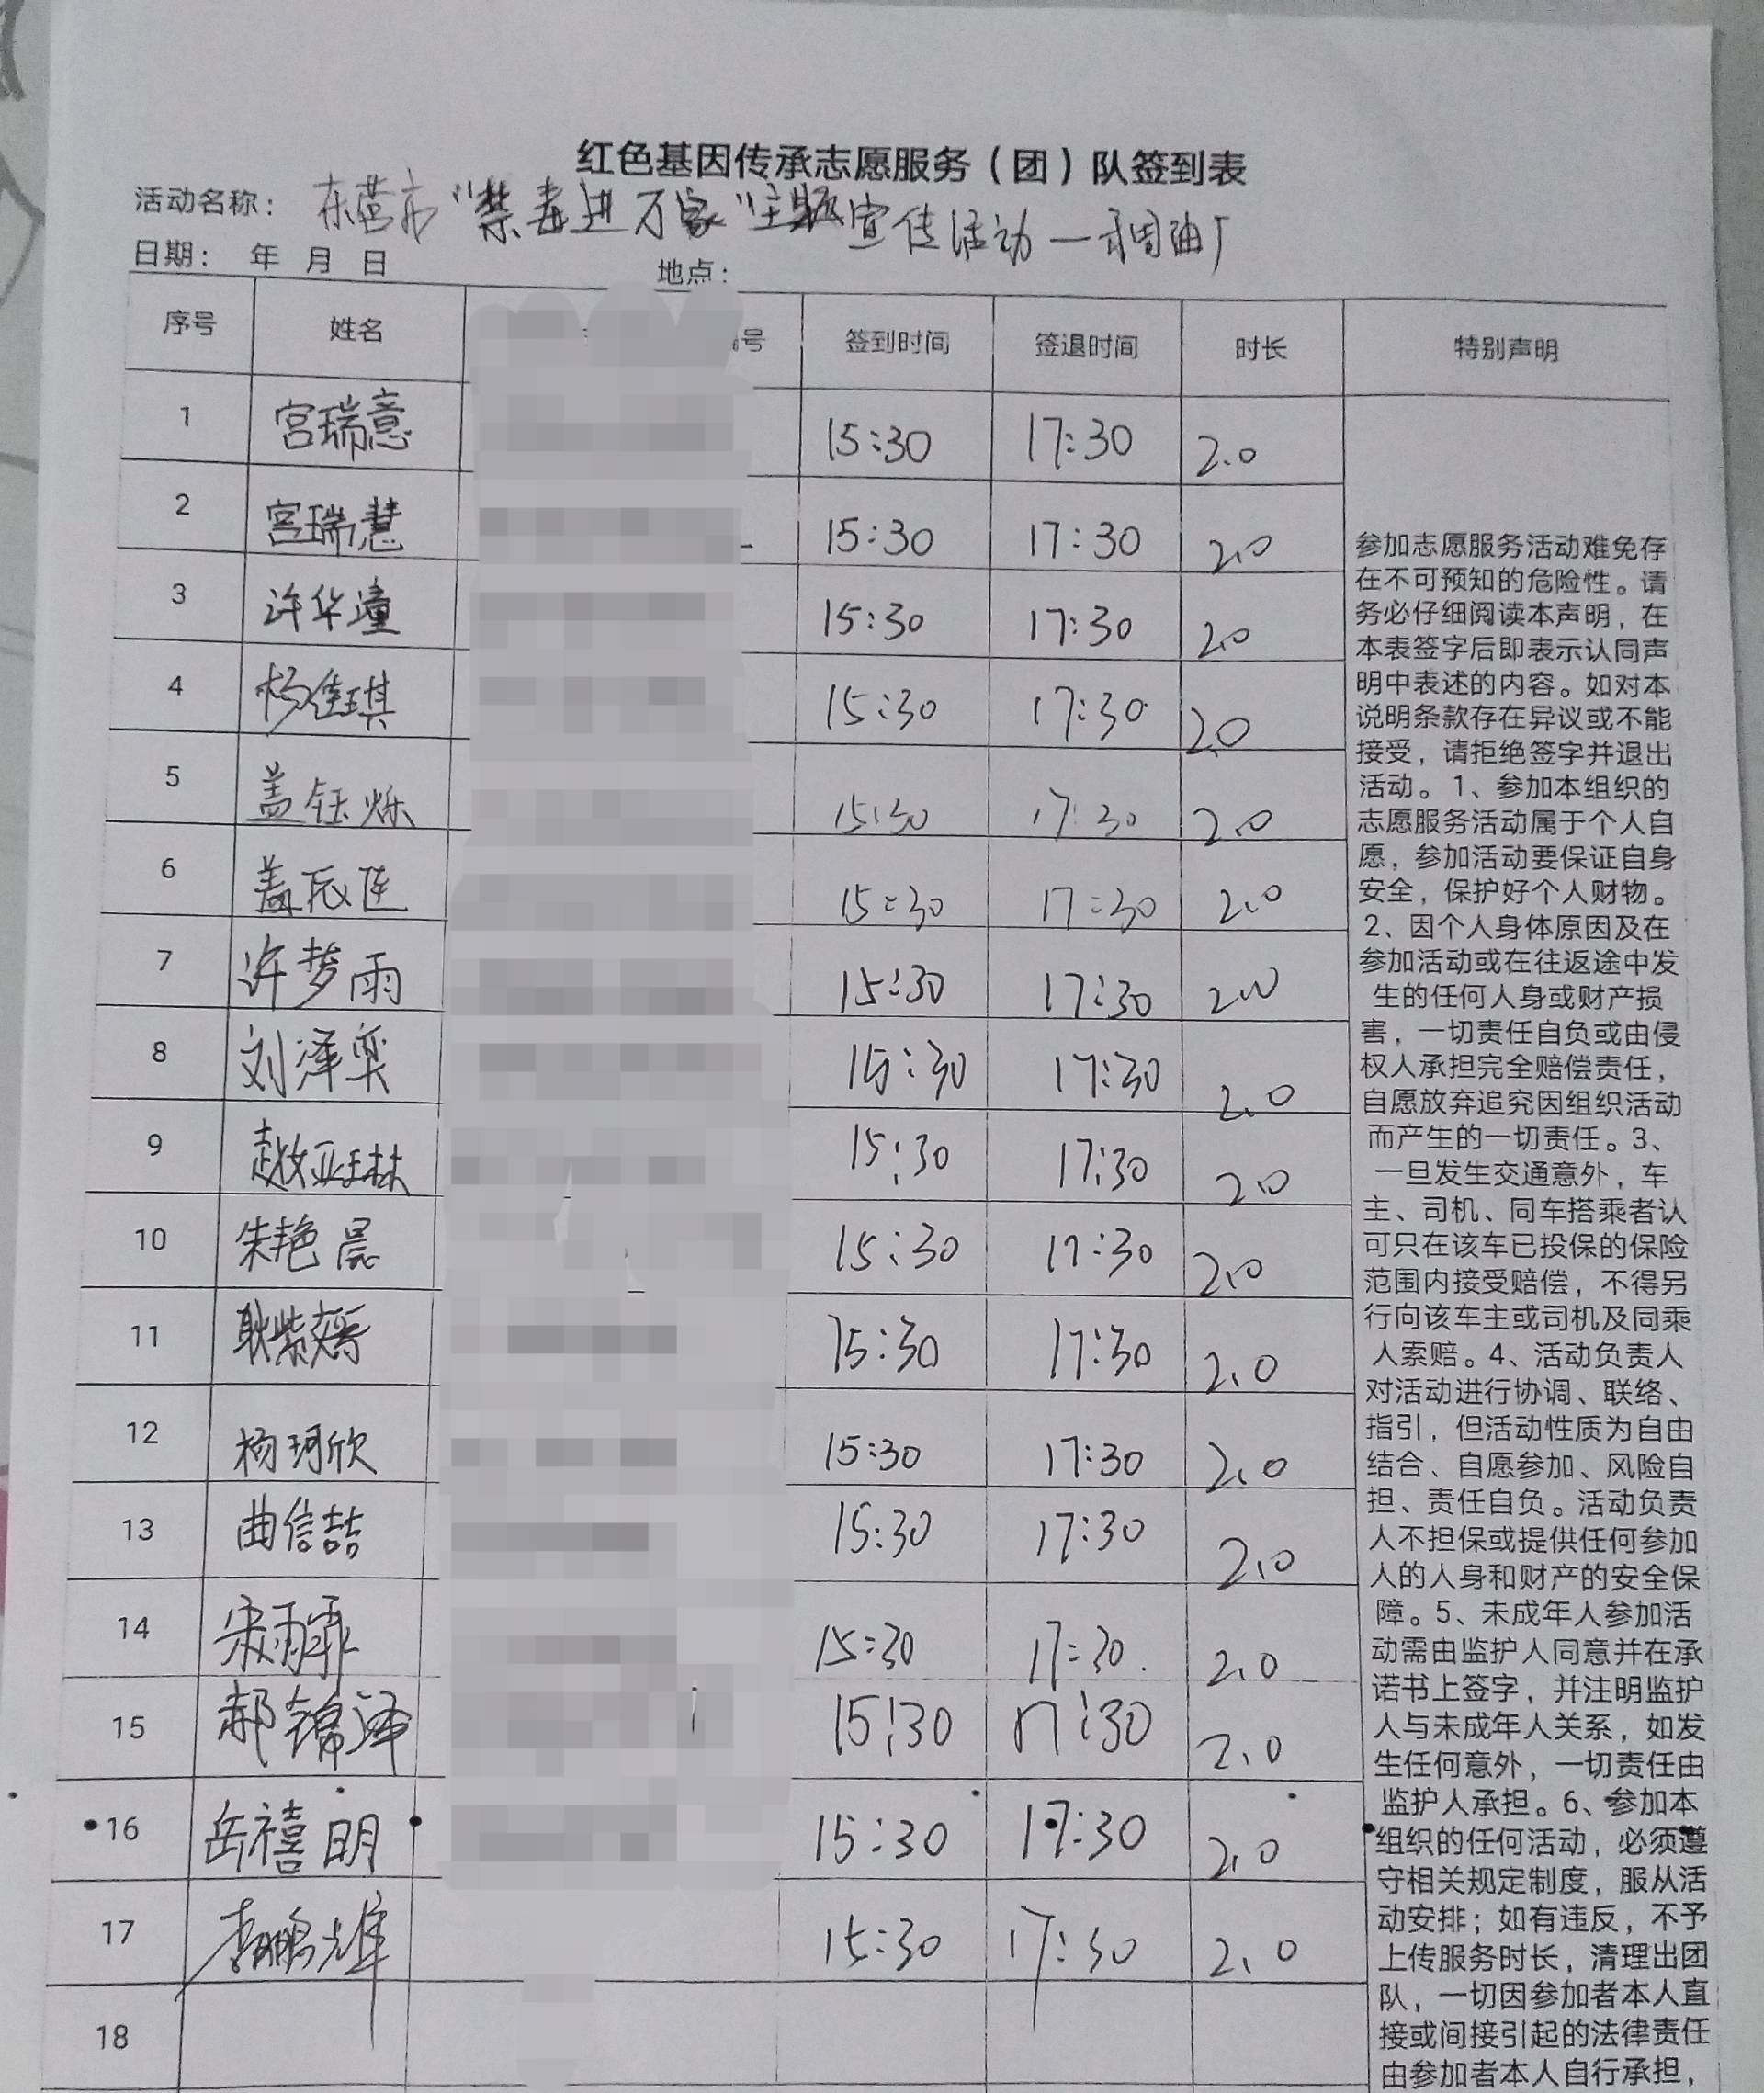 红色基因传承志愿服务（团）队签到表
活动名称： 东营市“禁毒进万家”主题宣传活动—稠油厂
日期： 年 月 日 地点：
序号 姓名 号 签到时间 签退时间 时长 特别声明
1 宫瑞意 15:30 17:30 2.0
2 宫瑞慧 15:30 17:30 2.0
3 许华潼 15:30 17:30 2.0
4 杨佳琪 15:30 17:30 2.0
5 盖钰烁 15:30 17:30 2.0
6 盖辰廷 15:30 17:30 2.0
7 许梦雨 15:30 17:30 2.0
8 刘泽奕 15:30 17:30 2.0
9 赵亚琳 15:30 17:30 2.0
10 朱艳晨 15:30 17:30 2.0
11 耿紫 15:30 17:30 2.0
12 杨珂欣 15:30 17:30 2.0
13 曲信喆 15:30 17:30 2.0
14 宋雨霏 15:30 17:30 2.0
15 郝锦泽 15:30 17:30 2.0
16 岳禧明 15:30 17:30 2.0
17 李鹏 15:30 17:30 2.0
18
参加志愿服务活动难免存
在不可预知的危险性。请
务必仔细阅读本声明，在
本表签字后即表示认同声
明中表述的内容。如对本
说明条款存在异议或不能
接受，请拒绝签字并退出
活动。1、参加本组织的
志愿服务活动属于个人自
愿，参加活动要保证自身
安全，保护好个人财物。
2、因个人身体原因及在
参加活动或在往返途中发
生的任何人身或财产损
害，一切责任自负或由侵
权人承担完全赔偿责任，
自愿放弃追究因组织活动
而产生的一切责任。3、
一旦发生交通意外，车
主、司机、同车搭乘者认
可只在该车已投保的保险
范围内接受赔偿，不得另
行向该车主或司机及同乘
人索赔。4、活动负责人
对活动进行协调、联络、
指引，但活动性质为自由
结合、自愿参加、风险自
担、责任自负。活动负责
人不担保或提供任何参加
人的人身和财产的安全保
障。5、未成年人参加活
动需由监护人同意并在承
诺书上签字，并注明监护
人与未成年人关系，如发
生任何意外，一切责任由
监护人承担。6、参加本
组织的任何活动，必须遵
守相关规定制度，服从活
动安排；如有违反，不予
上传服务时长，清理出团
队，一切因参加者本人直
接或间接引起的法律责任
由参加者本人自行承担，